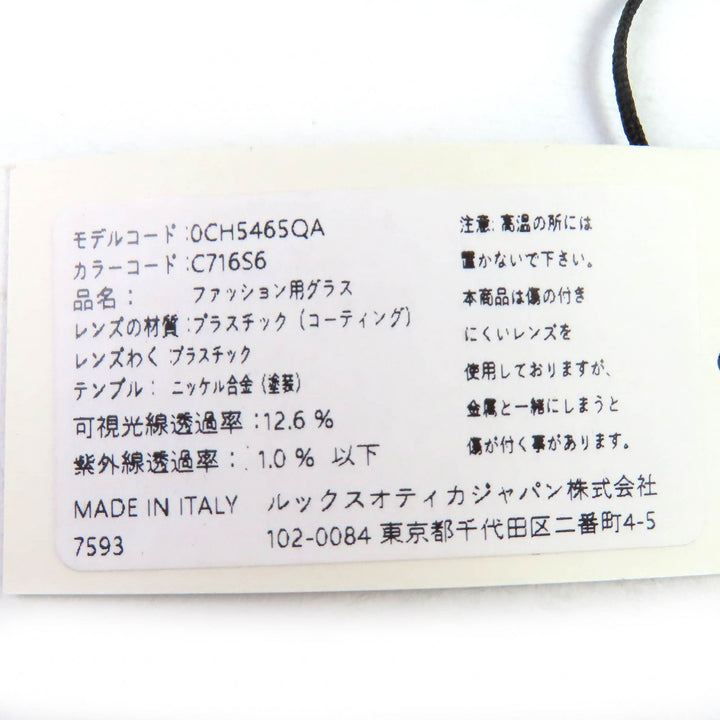 モデルコード:0CH5465QA
カラーコード:C716S6
品名: ファッション用グラス
レンズの材質:プラスチック(コーティング)
レンズわく:プラスチック
テンプル: ニッケル合金(塗装)
可視光線透過率:12.6 %
紫外線透過率: 1.0 % 以下
注意:高温の所には
置かないで下さい。
本商品は傷の付き
にくいレンズを
使用しておりますが、
金属と一緒にしまうと
傷が付く事があります。
MADE IN ITALY ルックスオティカジャパン株式会社
7593 102-0084 東京都千代田区二番町4-5